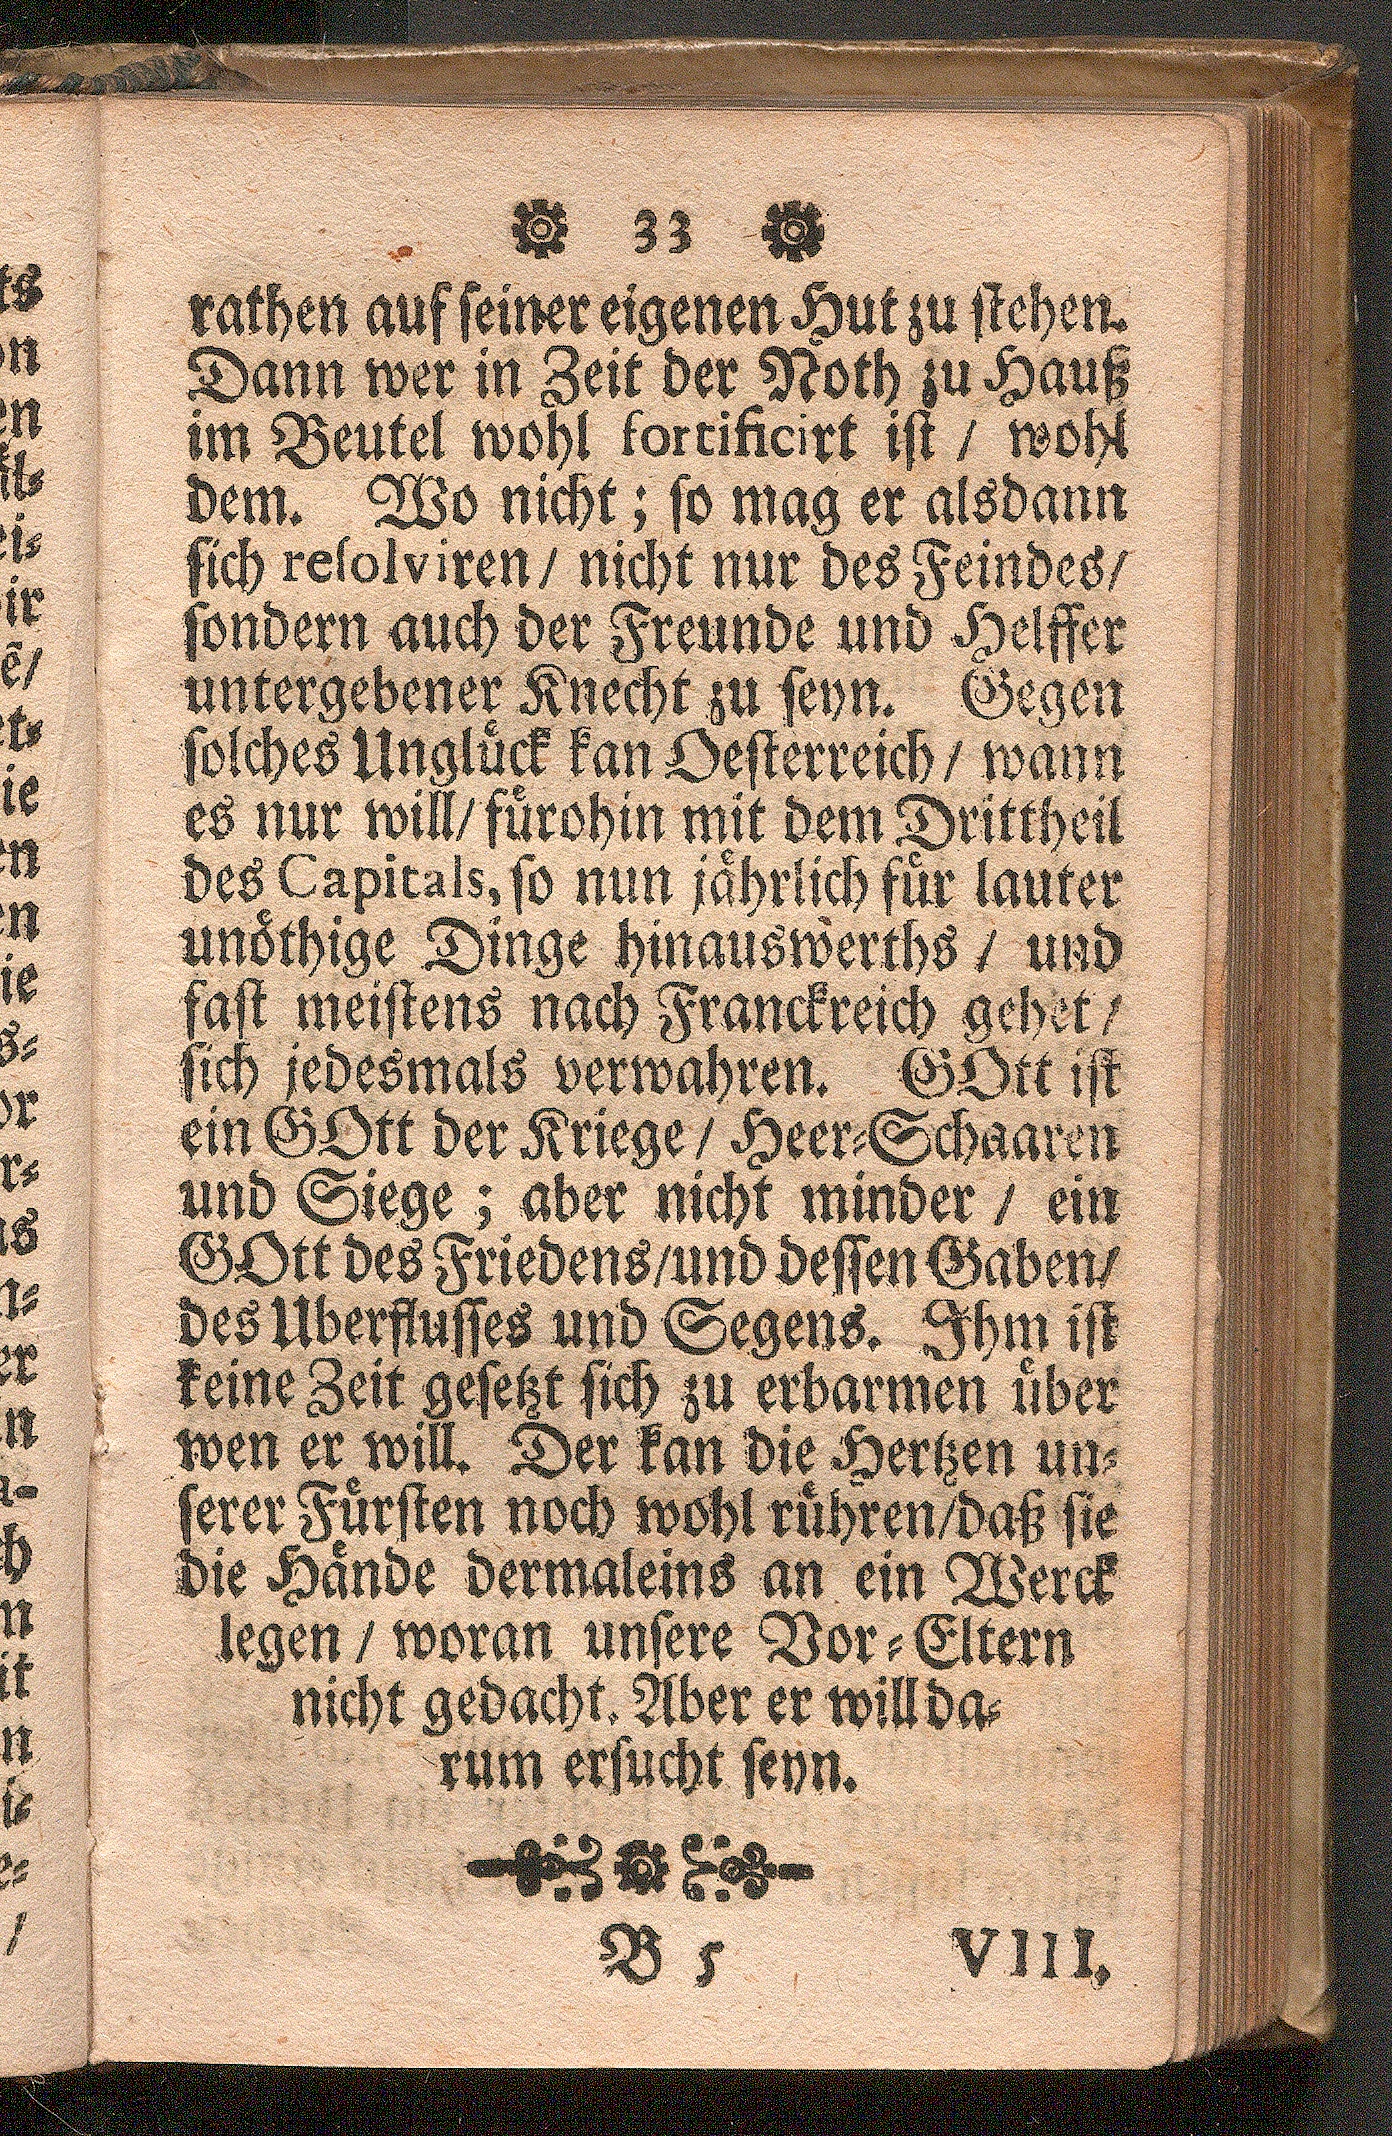 33
rathen auf seiner eigenen Hut zu stehen.
Dann wer in Zeit der Noth zu Hauß
im Beutel wohl fortificirt ist / wohl
dem. Wo nicht; so mag er alsdann
sich resolviren / nicht nur des Feindes /
sondern auch der Freunde und Helffer
untergebener Knecht zu seyn. Gegen
solches Unglück kan Oesterreich / wann
es nur will / fürohin mit dem Drittheil
des Capitals, so nun jährlich für lauter
unöthige Dinge hinauswerths / und
fast meistens nach Franckreich gehet /
sich jedesmals verwahren. GOtt ist
ein GOtt der Kriege / Heer-Schaaren
und Siege; aber nicht minder / ein
GOtt des Friedens / und dessen Gaben /
des Uberflusses und Segens. Ihm ist
keine Zeit gesetzt sich zu erbarmen über
wen er will. Der kan die Hertzen un-
serer Fürsten noch wohl rühren / daß sie
die Hände dermaleins an ein Werck
legen / woran unsere Vor-Eltern
nicht gedacht. Aber er will da-
rum ersucht seyn.
B 5 VIII.